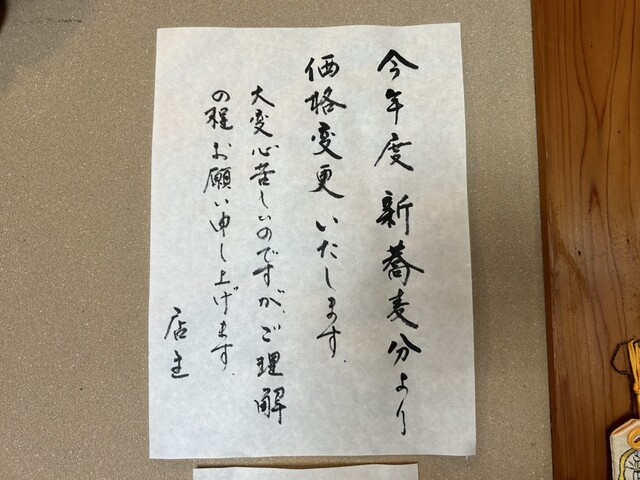 今年度 新蕎麦分より
価格変更いたします.
大変心苦しいのですが、ご理解
の程お願い申し上げます.
店主